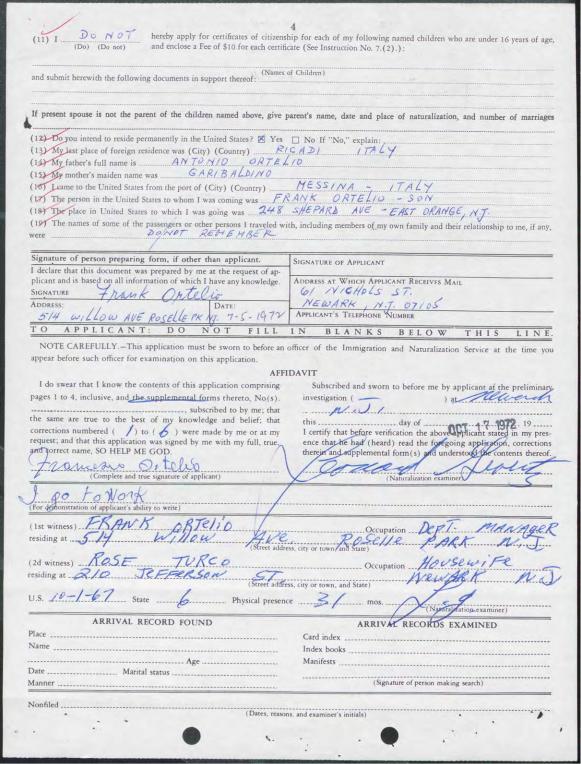 4
(11) I DO NOT hereby apply for certificates of citizenship for each of my following named children who are under 16 years of age,
(Do) (Do not) and enclose a Fee of $10 for each certificate (See Instruction No. 7.(2).):
(Names of Children)
and submit herewith the following documents in support thereof:
If present spouse is not the parent of the children named above, give parent's name, date and place of naturalization, and number of marriages
(12) Do you intend to reside permanently in the United States? ☒ Yes ☐ No If "No," explain:
(13) My last place of foreign residence was (City) (Country) RICADI ITALY
(14) My father's full name is ANTONIO ORTELIO
(15) My mother's maiden name was GARIBALDINO
(16) I came to the United States from the port of (City) (Country) MESSINA - ITALY
(17) The person in the United States to whom I was coming was FRANK ORTELIO - SON
(18) The place in United States to which I was going was 248 SHEPARD AVE - EAST ORANGE, N.J.
(19) The names of some of the passengers or other persons I traveled with, including members of my own family and their relationship to me, if any,
were DO NOT REMEMBER
Signature of person preparing form, if other than applicant.
I declare that this document was prepared by me at the request of ap-
plicant and is based on all information of which I have any knowledge.
SIGNATURE Frank Ortelio
ADDRESS: DATE:
514 WILLOW AVE ROSELLE PK NJ. 7-5-1972
SIGNATURE OF APPLICANT
ADDRESS AT WHICH APPLICANT RECEIVES MAIL
61 NICHOLS ST.
NEWARK, N.J. 07105
APPLICANT'S TELEPHONE NUMBER
TO APPLICANT: DO NOT FILL IN BLANKS BELOW THIS LINE.
NOTE CAREFULLY.—This application must be sworn to before an officer of the Immigration and Naturalization Service at the time you
appear before such officer for examination on this application.
AFFIDAVIT
I do swear that I know the contents of this application comprising
pages 1 to 4, inclusive, and the supplemental forms thereto, No(s).
, subscribed to by me; that
the same are true to the best of my knowledge and belief; that
corrections numbered ( 1 ) to ( 6 ) were made by me or at my
request; and that this application was signed by me with my full, true,
and correct name, SO HELP ME GOD.
(Complete and true signature of applicant)
I go to Work
(For demonstration of applicant's ability to write)
Subscribed and sworn to before me by applicant at the preliminary
investigation ( ) at Newark
N.J.
this day of OCT 17 1972, 19
I certify that before verification the above applicant stated in my pres-
ence that he had (heard) read the foregoing application, corrections
therein and supplemental form(s) and understood the contents thereof.
(Naturalization examiner)
(1st witness) FRANK ORTELIO Occupation DEPT. MANAGER
residing at 514 Willow Ave. ROSELLE PARK N.J
(Street address, city or town, and State)
(2d witness) ROSE TURCO Occupation HOUSEWIFE
residing at 210 JEFFERSON ST NEWARK N.J
(Street address, city or town, and State)
U.S. 10-1-67 State 6 Physical presence 31 mos.
(Naturalization examiner)
ARRIVAL RECORD FOUND
Place
Name
Age
Date Marital status
Manner
ARRIVAL RECORDS EXAMINED
Card index
Index books
Manifests
(Signature of person making search)
Nonfiled
(Dates, reasons, and examiner's initials)